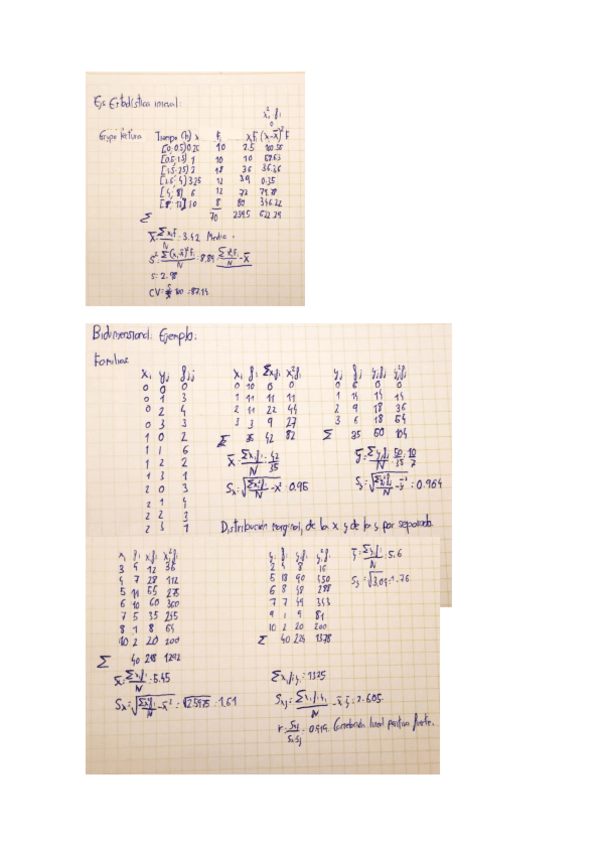 Ejs Estadística inicial:
x² f
Tiempo (h) x Fi xF (x-x̄)² F
[0, 0.5) 0.25 10 2.5 100.56
[0.5, 1.5) 1 10 10
[1.5, 2.5) 2 18 36 36.26
[2.5, 4) 3.25 12 39 0.35
[4, 8) 6 12 72 79.78
[8, 12] 10 8 80 346.22
Σ 70 239.5 622.29
x̄ = Σxf/N = 3.42 Media
S² = Σ(x-x̄)² f/N = 8.89
s = 2.98
CV = 100 = 87.14
Bidimensional: Ejemplo:
Familias
xi yj fij
0 0 0
0 1 3
0 2 4
0 3 3
1 0 2
1 1 6
1 2 2
1 3 1
2 0 3
2 1 4
2 2 3
2 3 1
xi fi Σxifi xi²fi
0 10 0 0
1 11 11 11
2 11 22 44
3 3 9 27
Σ 35 42 82
x̄ = Σxifi/N = 42/35
Sx = √Σxi²fi/N - x̄² = 0.95
yj fj yjfj yj²fj
0 6 0 0
1 14 14 14
2 9 18 36
3 6 18 54
Σ 35 50 104
ȳ = Σyjfj/N = 50/35 = 10/7
Sy = √Σyj²fj/N - ȳ² = 0.964
Distribución marginal, de las x y de las y por separado.
xi fi xifi xi²fi
3 4 12 36
4 7 28 112
5 11 55 275
6 10 60 360
7 5 35 245
8 1 8 64
10 2 20 200
Σ 40 218 1292
x̄ = Σxifi/N = 5.45
Sx = √Σxi²fi/N - x̄² = √2.5975 = 1.61
yj fj yjfj yj²fj
2 4 8 16
5 18 90 450
6 8 48 288
7 7 49 343
9 1 9 81
10 2 20 200
Σ 40 224 1378
ȳ = Σyjfj/N = 5.6
Sy = √3.09 = 1.76
Σxiyj = 1325
Sxy = Σxiyj/N - x̄·ȳ = 2.605.
r = Sxy/SxSy = 0.919. lineal positiva fuerte.